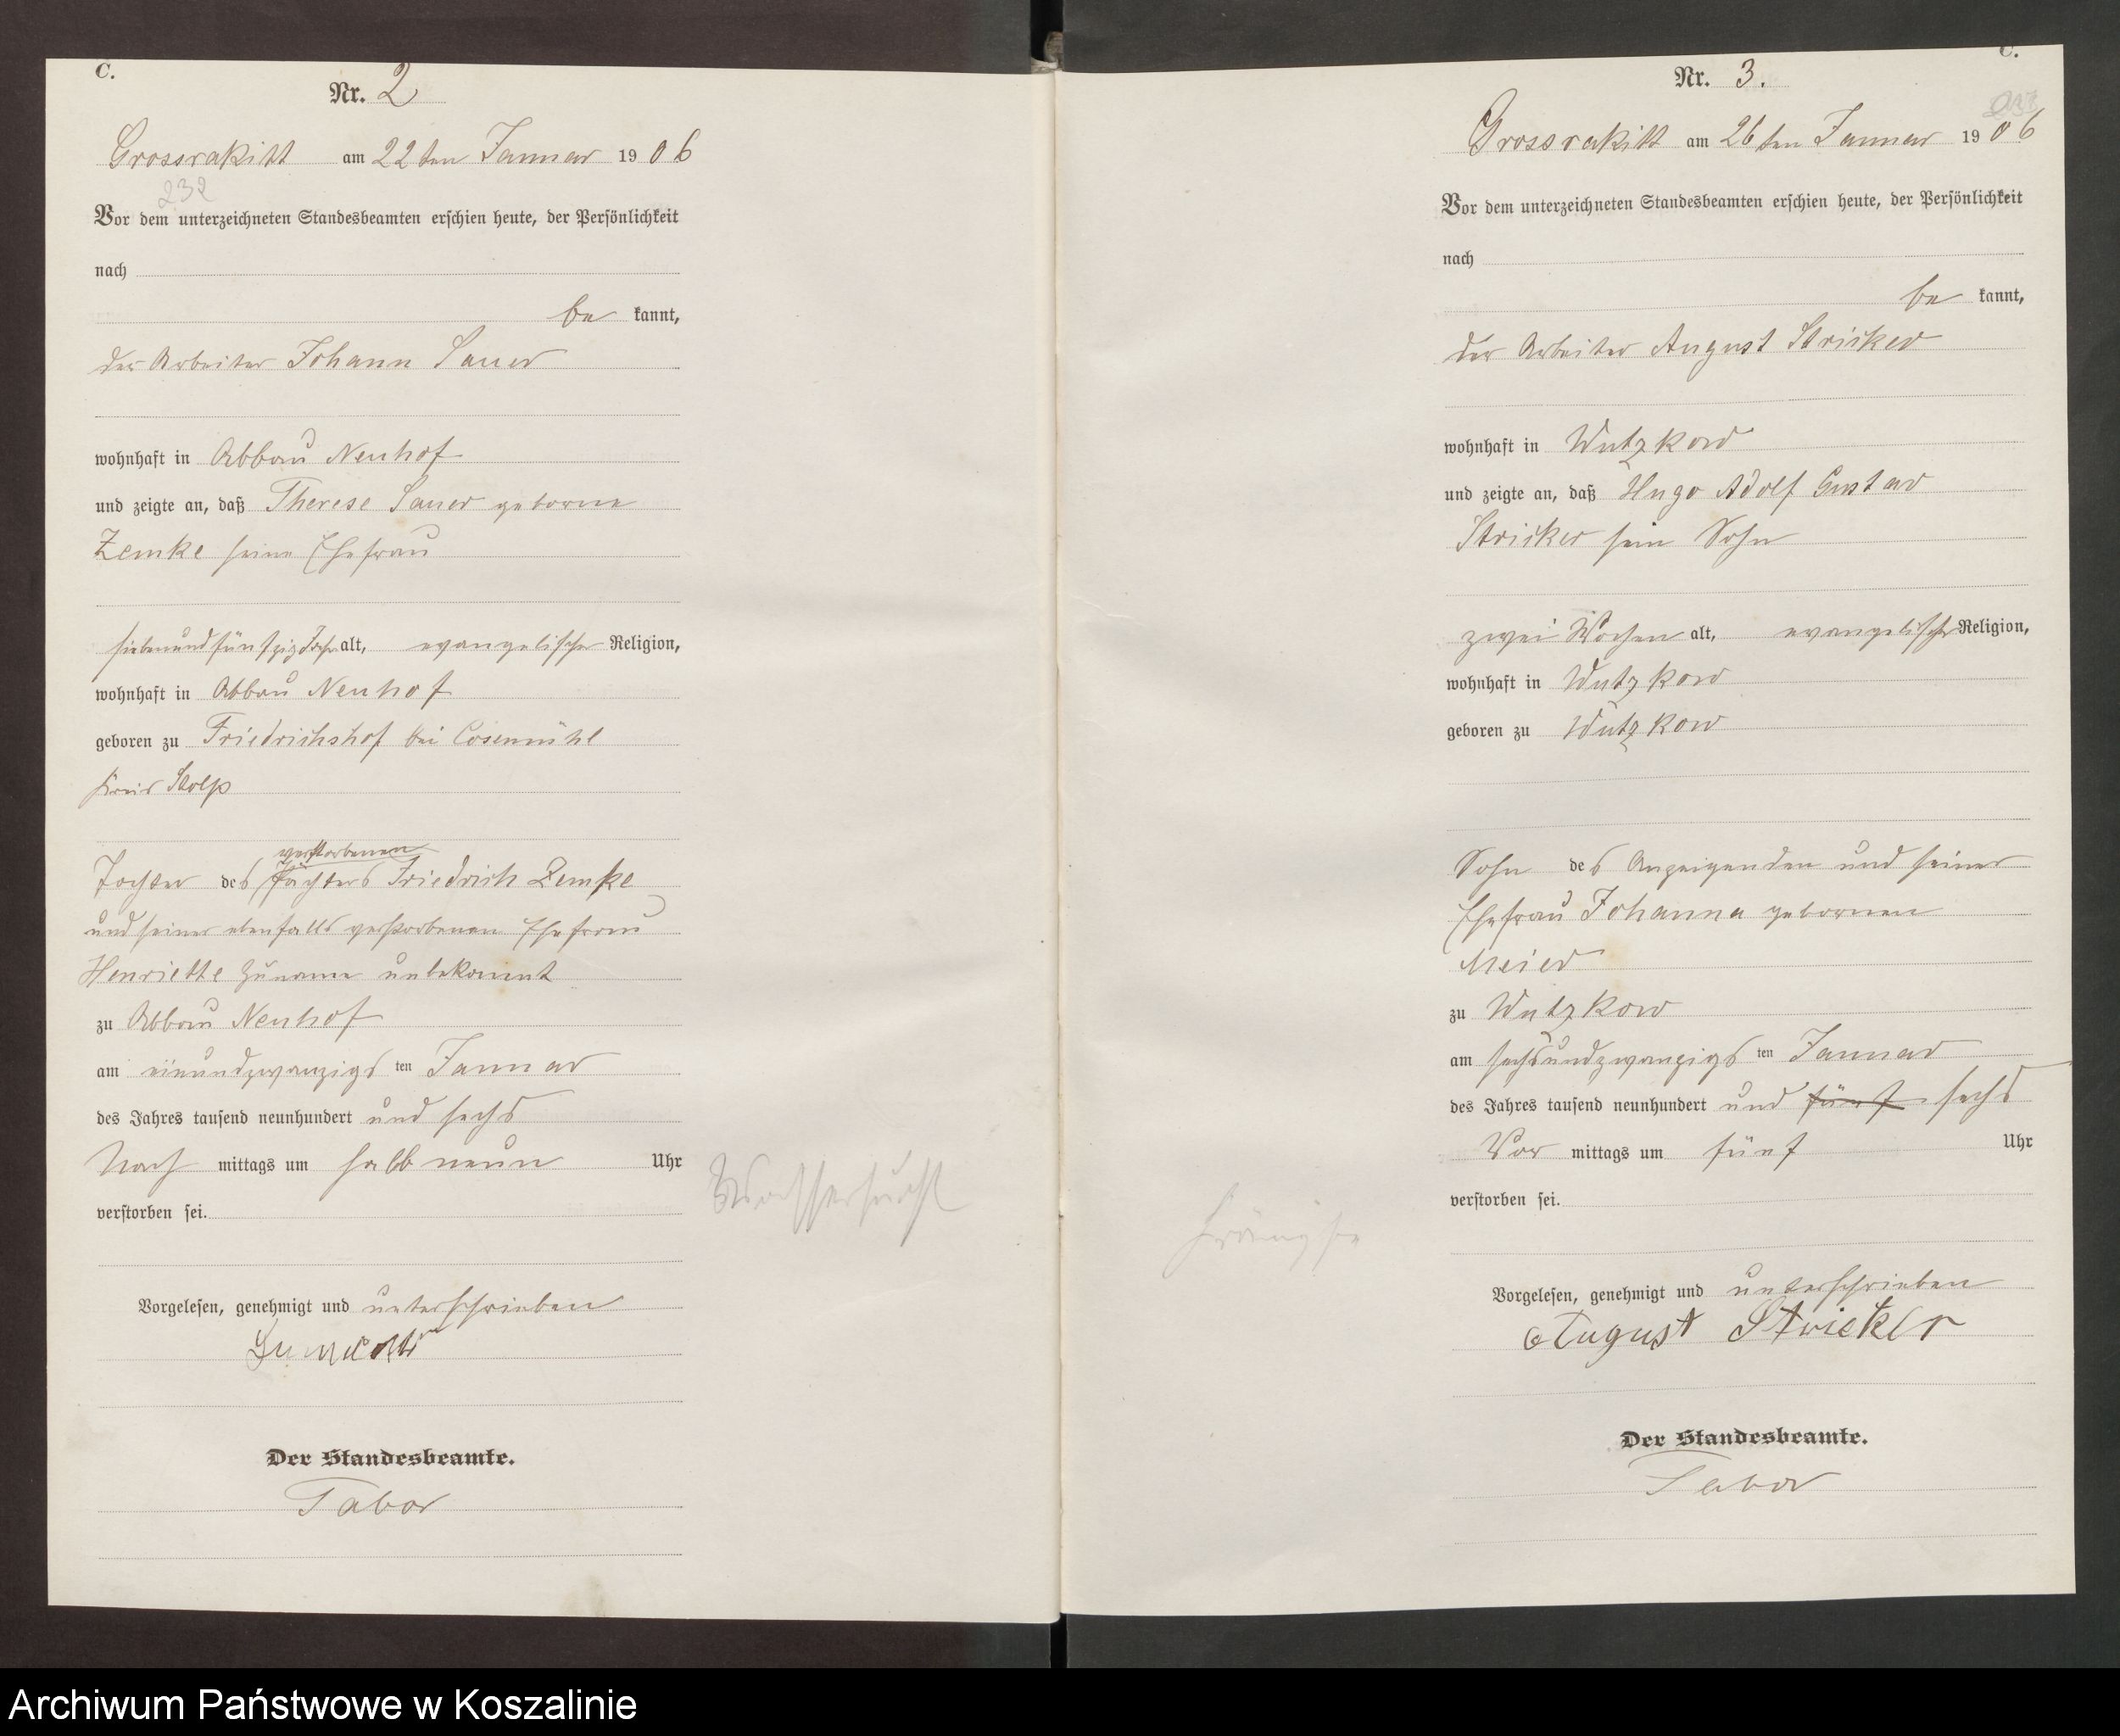 C.
Nr. 2
Grossrakitt am 22ten Januar 1906
232
Vor dem unterzeichneten Standesbeamten erschien heute, der Persönlichkeit
nach
be kannt,
der Arbeiter Johann Sauer
wohnhaft in Abbau Neuhof
und zeigte an, daß Therese Sauer geborne
Zemke seine Ehefrau
siebenundfünfzig Jahr alt, evangelischer Religion,
wohnhaft in Abbau Neuhof
geboren zu Friedrichshof bei Cosemühl
Kreis Stolp
verstorbenen
Tochter des Pächters Friedrich Zemke
und seiner ebenfalls verstorbenen Ehefrau
Henriette Zuname unbekannt
zu Abbau Neuhof
am einundzwanzigsten Januar
des Jahres tausend neunhundert und sechs
Nach mittags um halb neun Uhr
verstorben sei.
Wassersucht
Vorgelesen, genehmigt und unterschrieben
Der Standesbeamte.
Tabor
C.
Nr. 3.
Grossrakitt am 26ten Januar 1906
Vor dem unterzeichneten Standesbeamten erschien heute, der Persönlichkeit
nach
be kannt,
der Arbeiter August Stricker
wohnhaft in Wutzkow
und zeigte an, daß Hugo Adolf Gustav
Stricker sein Sohn
zwei Wochen alt, evangelischer Religion,
wohnhaft in Wutzkow
geboren zu Wutzkow
Sohn des Anzeigenden und seiner
Ehefrau Johanna gebornen
Meier
zu Wutzkow
am sechsundzwanzigsten Januar
des Jahres tausend neunhundert und fünf sechs
Vor mittags um fünf Uhr
verstorben sei.
Krämpfe
Vorgelesen, genehmigt und unterschrieben
August Stricker
Der Standesbeamte.
Tabor
Archiwum Państwowe w Koszalinie